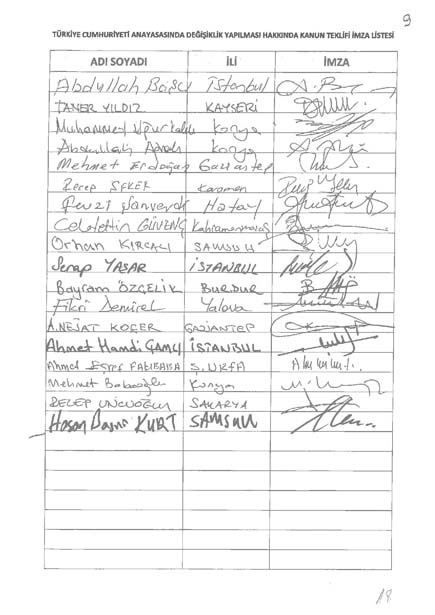 9
TÜRKİYE CUMHURİYETİ ANAYASASINDA DEĞİŞİKLİK YAPILMASI HAKKINDA KANUN TEKLİFİ İMZA LİSTESİ
ADI SOYADI İLİ İMZA
Abdullah Başcı İstanbul
TANER YILDIZ KAYSERİ
Muhammet Konya
Abdullah Konya
Mehmet Erdoğan Gaziantep
Recep ŞEKER Karaman
Fevzi Şanverdi Hatay
Celalettin GÜVENÇ Kahramanmaraş
Orhan KIRCALI SAMSUN
Serap YAŞAR İSTANBUL
Bayram ÖZÇELİK BURDUR
Fikri Demirel Yalova
A.NEJAT KOÇER GAZİANTEP
Ahmet Hamdi ÇAMLI İSTANBUL
Ahmet EŞREF FAKIBABA Ş.URFA
Mehmet Babaoğlu Konya
RECEP UNCUOĞLU SAKARYA
Hasan Basri KURT SAMSUN
18